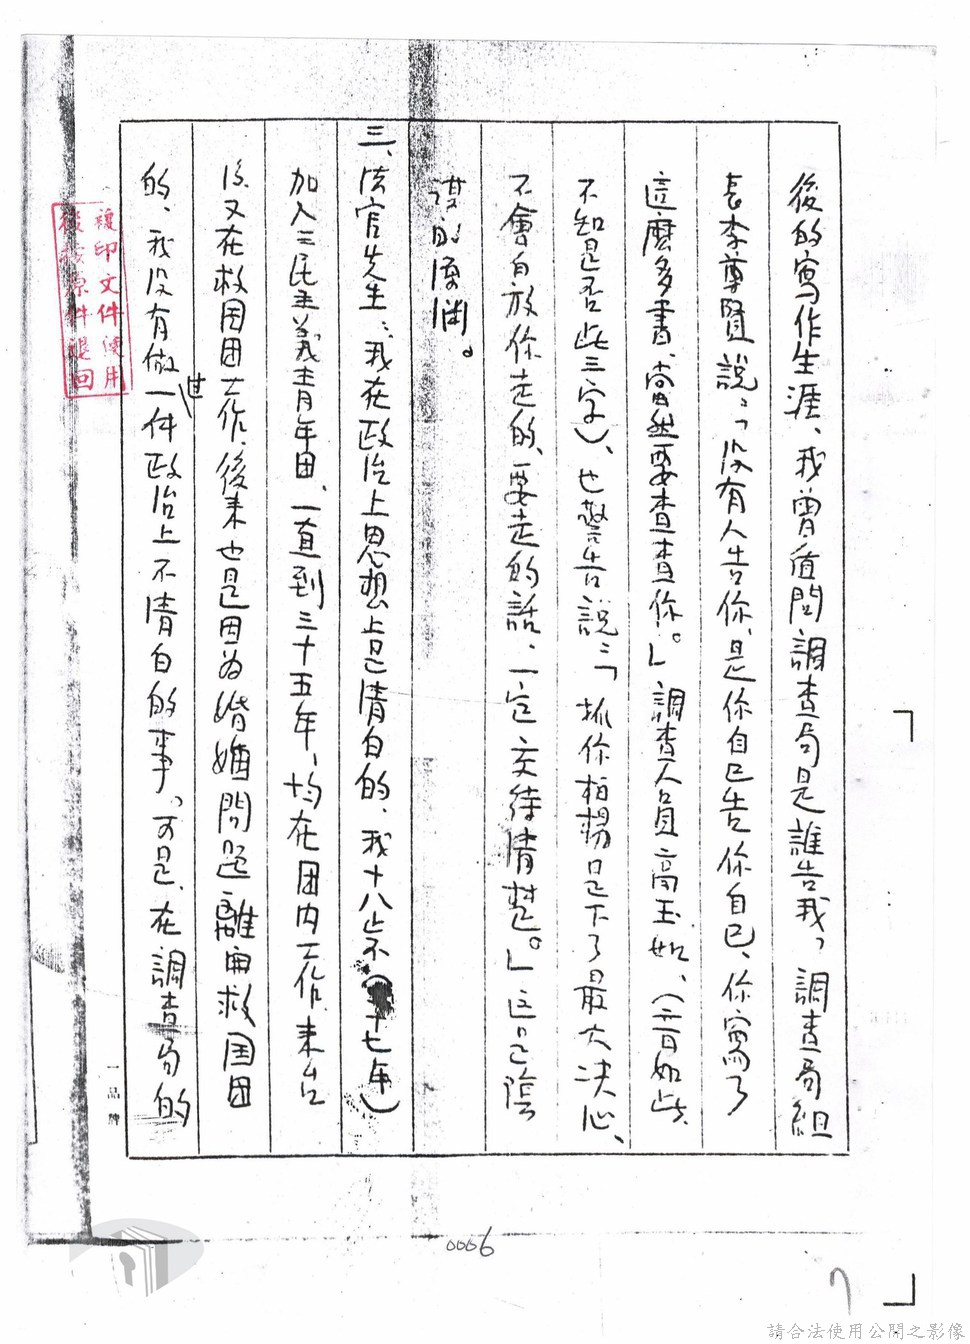 後的寫作生涯、我曾質問調查局是誰告我，調查局組
長李尊賢說：「沒有人告你、是你自己告你自己、你寫了
這麼多書、當然要查查你。」調查人員高玉如、(音如此
不知是否此三字)、也警告說：「抓你柏楊是下了最大決心、
不會白放你走的、要走的話、一定交待清楚。」這是陰
謀的淵。
三、法官先生：我在政治上思想上是清白的、我十八歲(十七年)
加入三民主義青年團、一直到三十五年、均在團內工作、來台
後又在救國團工作、後來也是因為婚姻問題離開救國團
的、我沒有做一件政治上不清白的事，可是、在調查局的
世
複印文件使用
後按原件退回
一品牌
0006
7
請合法使用公開之影像